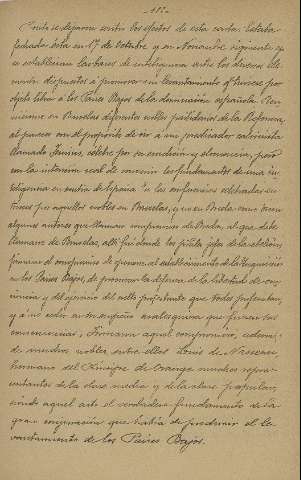 122.
Pronto se dejaron sentir los efectos de esta carta. Estaba
fechada ésta en 17 de Octubre y en Noviembre siguiente ya
se establecían las bases de inteligencia entre los diversos ele-
mentos dispuestos á promover un levantamiento que tuviese por
objeto librar á los Países Bajos de la dominación española. Reu-
niéronse en Bruselas diferentes nobles partidarios de la Reforma,
al parecer con el propósito de oir á un predicador calvinista
llamado Junius, célebre por su erudición y elocuencia, pero
con la intención real de convenir los fundamentos de una in-
teligencia en contra de España. En las conferencias celebradas en-
tonces por aquellos nobles en Bruselas, y no en Breda como creen
algunos autores que llaman compromiso de Breda, al que debe
llamarse de Bruselas, allí fué donde los jefes de la rebelión
firmaron el compromiso de oponerse al establecimiento de la Inquisición
en los Países Bajos, de promover la defensa de la libertad de con-
ciencia y del ejercicio del culto protestante que todos profesaban,
y á no ceder en transacción cualesquiera que fueran sus
consecuencias. Firmaron aquel compromiso, además
de muchos nobles entre ellos Louis de Nassau
hermano del Príncipe de Orange muchos repre-
sentantes de la clase media y de la clase popular,
siendo aquel acto el verdadero fundamento de la
gran conjuración que había de producir el le-
vantamiento de los Países Bajos.